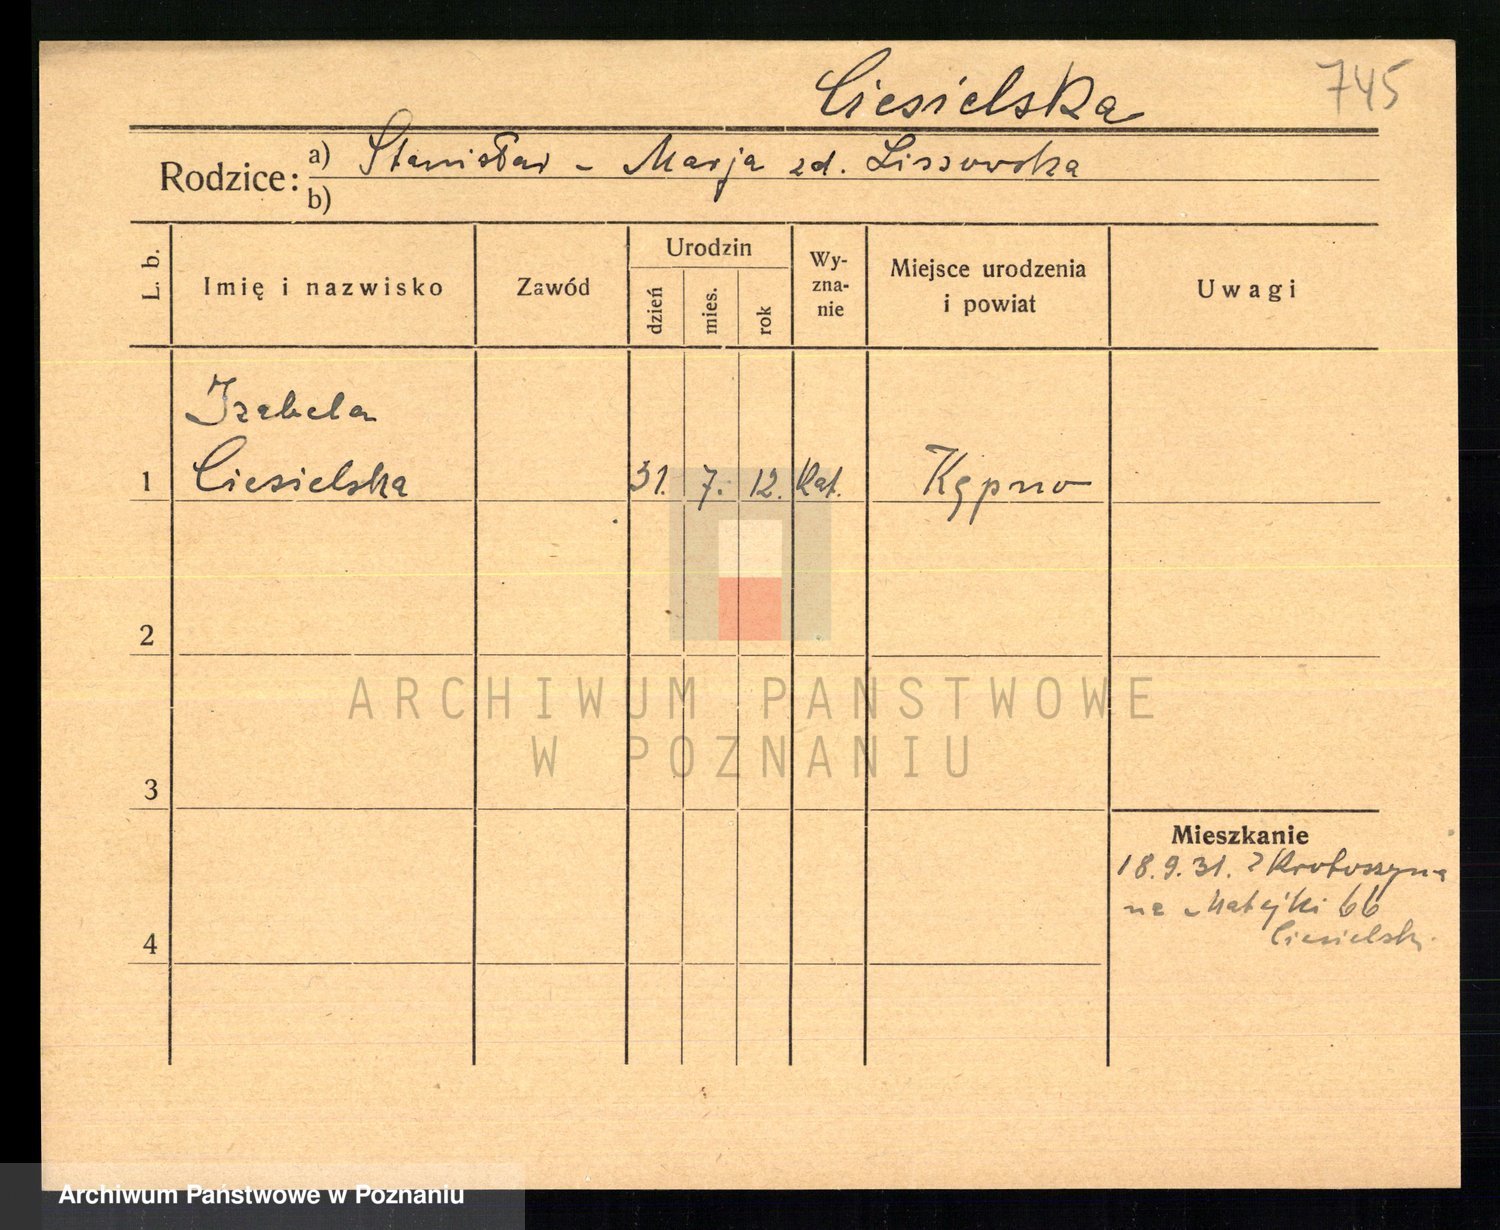 Ciesielska 745
Rodzice: a) Stanisław - Marja zd. Lissowska
b)
L. b. Imię i nazwisko Zawód Urodzin dzień mies. rok Wyznanie Miejsce urodzenia i powiat Uwagi
Izabela
1 Ciesielska 31. 7. 12. Kat. Kępno
2
ARCHIWUM PAŃSTWOWE
W POZNANIU
3
Mieszkanie
18.9.31. z Krotoszyna
na Matejki 66
4 Ciesielski.
Archiwum Państwowe w Poznaniu